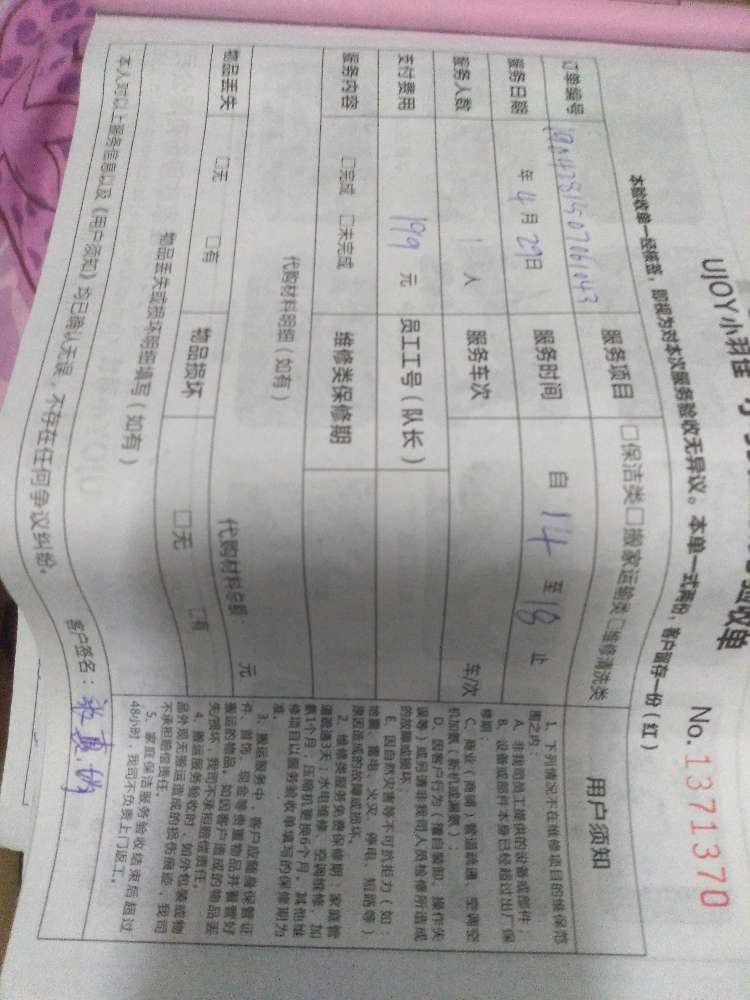 UJOY小羽佳
验收单
No.1371370
本验收单一经核签，即视为对本次服务验收无异议。本单一式两份，客户留存一份（红）
订单编号
服务项目 □保洁类□搬家运输类□维修清洗类
服务日期 年4月29日 服务时间 自14至18止
服务人数 1人 服务车次 车/次
支付费用 199元 员工工号（队长）
服务内容 □完成 □未完成 维修类保修期
代购材料明细（如有） 代购材料总额： 元
物品丢失 □无 □有 物品损坏 □无 □有
物品丢失或损坏明细填写（如有）
本人对以上服务信息以及《用户须知》均已确认无误，不存在任何争议纠纷。
客户签名：
用户须知
1、下列情况不在维修项目的维保范
围之内：
A、非我司员工提供的设备或部件；
B、设备或部件本身已经超过出厂保
修期；
C、商业（商铺）管道疏通、空调空
机加氟（新机或漏氟）；
D、因客户行为（擅自装卸、操作失
误等）或另请非我司人员检修所造成
的故障或损坏；
E、因自然灾害等不可抗拒力（如：
地震、雷电、火灾、停电、短路等）
原因造成的故障或损坏。
2、维修类服务免费保修期：家庭管
道疏通3天，水电维修、空调维修、加
氟1个月，压缩机更换6个月。其他维
修项目以服务验收单填写的保修期为
准。
3、搬运服务中，客户应随身保管证
件、首饰、现金等贵重物品并看管好
搬运的物品。如因客户造成的物品丢
失/损坏，我司不承担赔偿责任。
4、搬运服务验收时，如外包装或物
品外观无搬运造成的损伤痕迹，我司
不承担赔偿责任。
5、家庭保洁服务验收结束后超过
48小时，我司不负责上门返工。